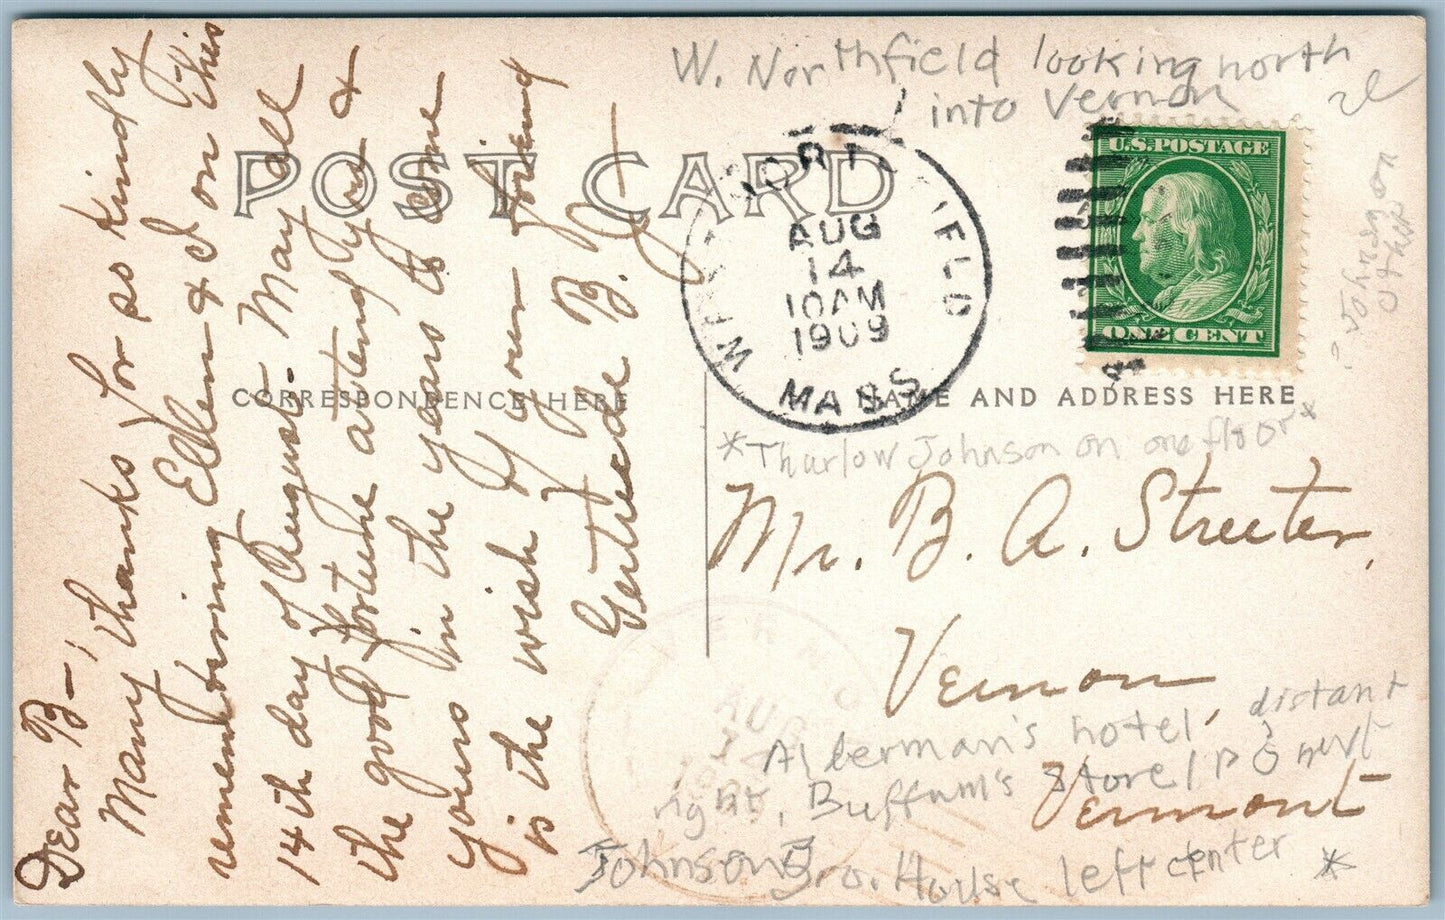 W. Northfield looking north
into Vernon
POST CARD
U.S. POSTAGE
ONE CENT
WEST NORTHFIELD
AUG
14
10 AM
1909
MASS
CORRESPONDENCE HERE
NAME AND ADDRESS HERE
*Thurlow Johnson on one floor*
Johnson on
other
Dear B-,
Many thanks for so kindly
remembering Ellen & I on this
14th day of August. May all
the good fortune attend you &
yours in the years to come
is the wish of your friend
Gertrude B. N-
Mr. B. A. Streeter,
Vernon,
Vermont
VERNON
AUG
14
Alderman's hotel, distant
right, Buffum's store/PO next
Johnson Bro. House left center *